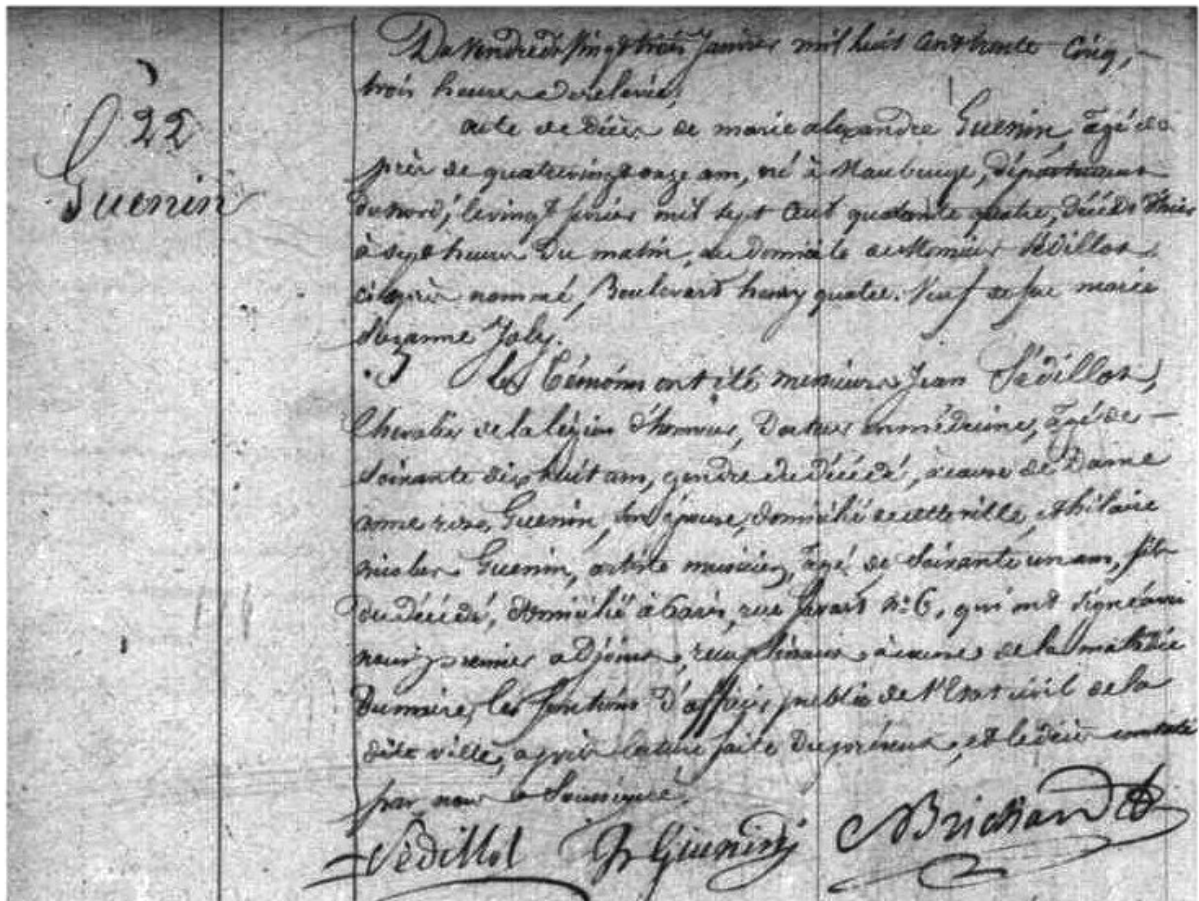 22
Guenin
Du Vendredi Vingt trois Janvier mil huit cent trente cinq,
trois heures de relevée,
acte de décès de marie alexandre Guenin, agé de
près de quatrevingt onze ans, né à Maubeuge, département
du nord, le vingt fevrier mil sept cent quarante quatre, décédé hier
à sept heures du matin, au domicile de Monsieur Sédillot
ci après nommé, Boulevard henry quatre. Veuf de feue marie
Suzanne Joly.
Les témoins ont été messieurs Jean Sédillot,
Chevalier de la légion d'honneur, Docteur en médecine, agé de
soixante dix huit ans, gendre du décédé, à cause de Dame
anne rose Guenin, son épouse, domicilié de cette ville, et hilaire
nicolas Guenin, artiste musicien, agé de soixante un ans, fils
du décédé, domicilié à Paris, rue favart No. 6, qui ont signé avec
nous premier adjoint, remplissant à cause de la maladie
du maire, les fonctions d'officier public de l'Etat civil de la
dite ville, après lecture faite du présent, et le décès constaté
par nous soussigné.
Sédillot Guenin Brichard